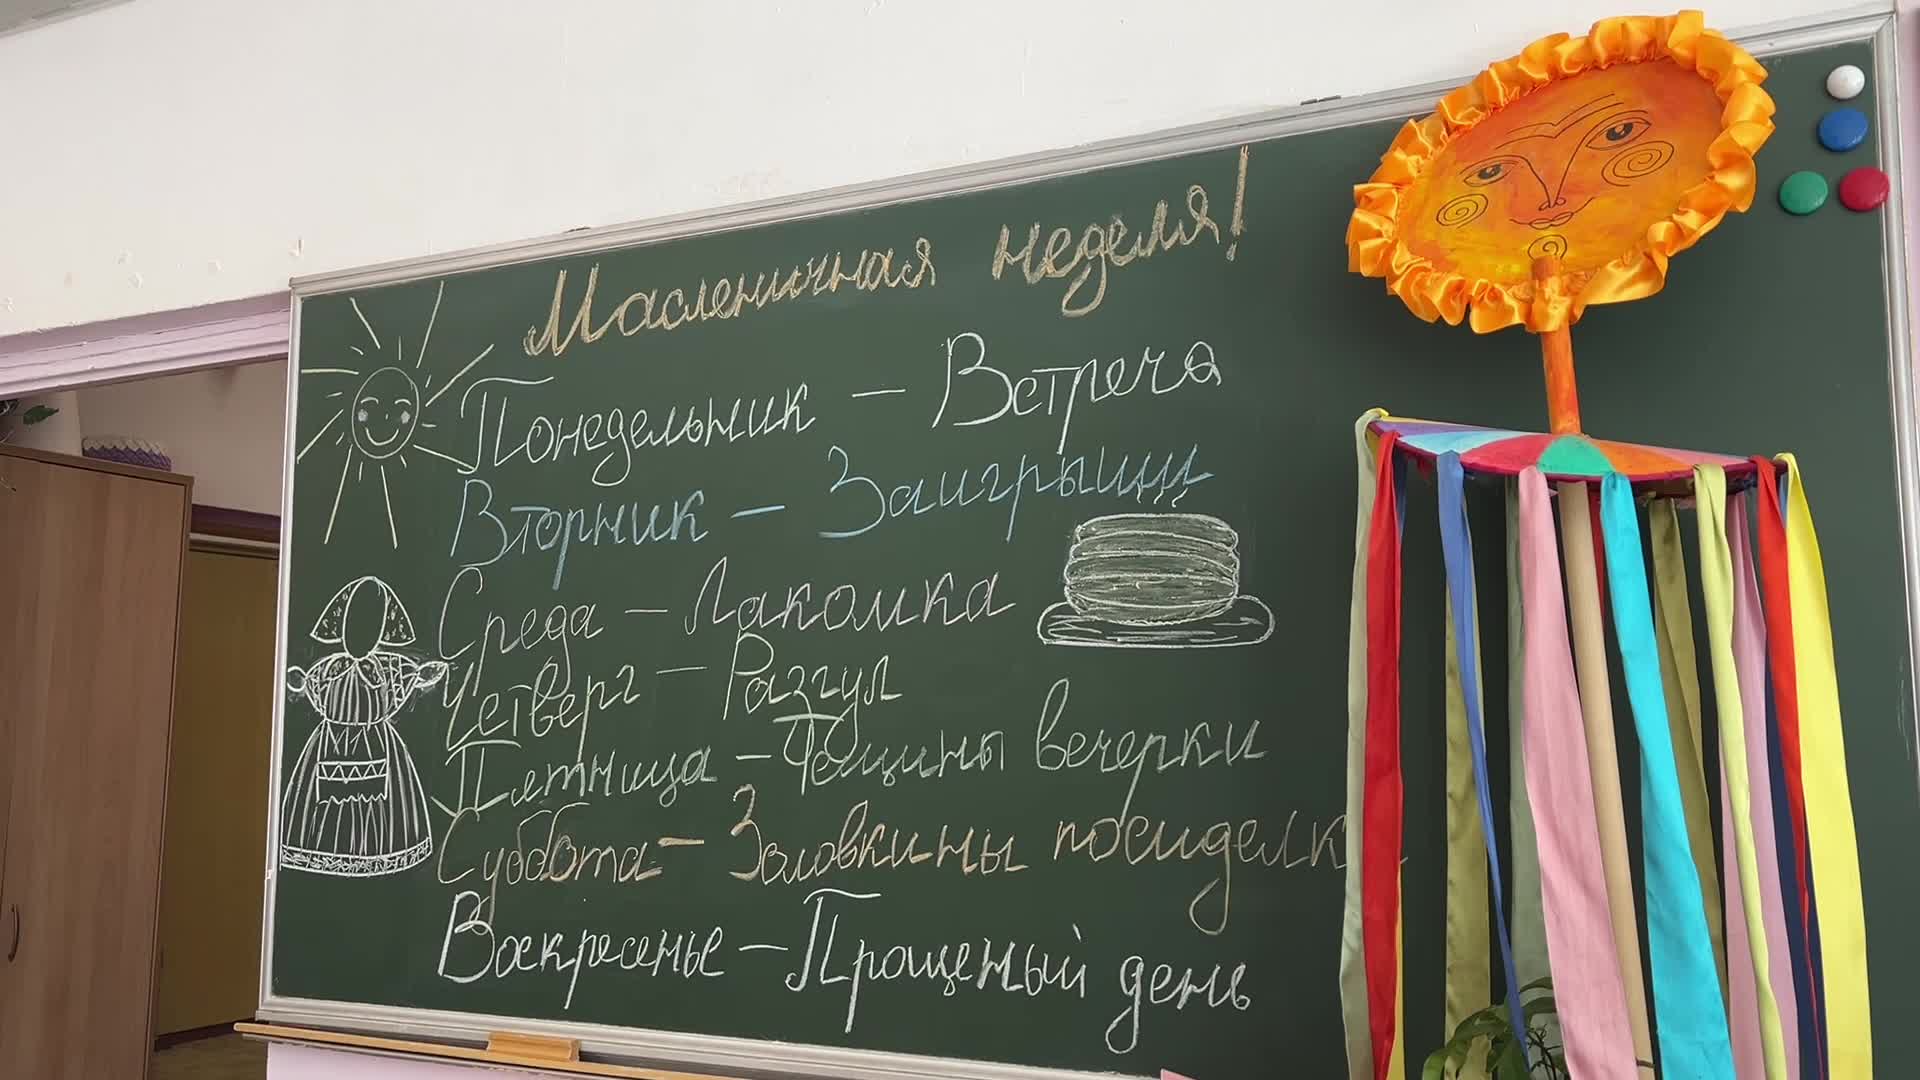 Масленичная неделя!
Понедельник – Встреча
Вторник – Заигрыши
Среда – Лакомка
Четверг – Разгул
Пятница – Тёщины вечерки
Суббота – Золовкины посиделк
Воскресенье – Прощеный день